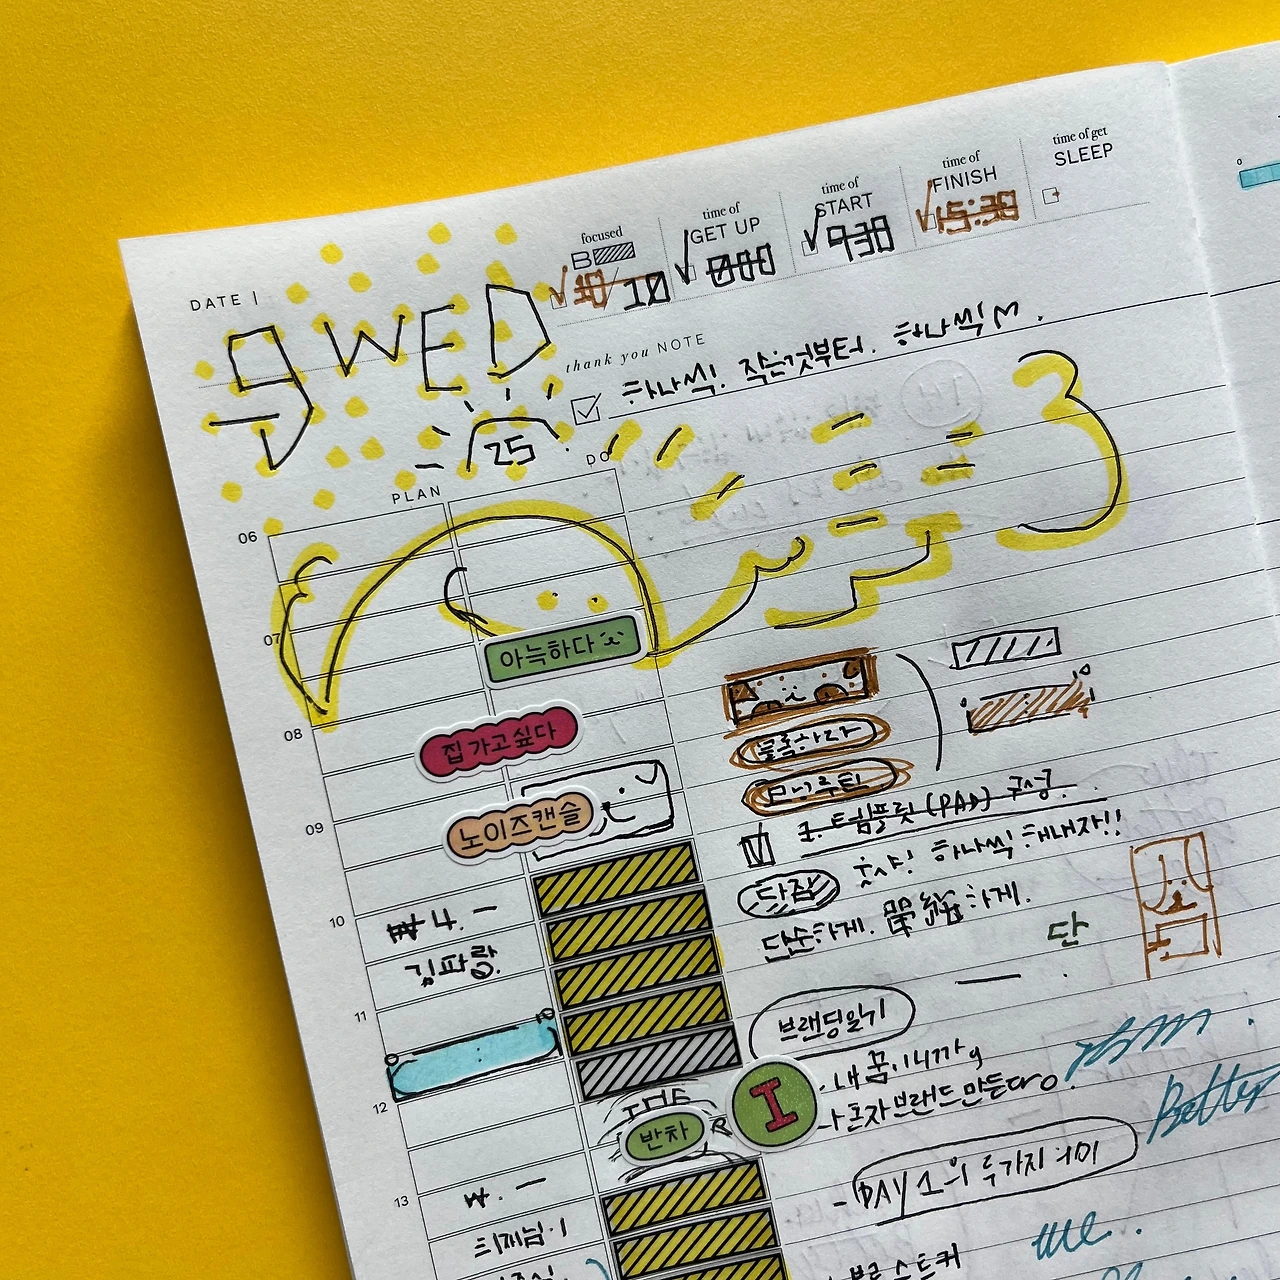 DATE |
9 WED
focused
10/10
time of
GET UP
000
time of
START
930
time of
FINISH
15:30
time of get
SLEEP
thank you NOTE
하나씩! 작은것부터. 하나씩M.
25
PLAN
DO
06
07
08
09
10
11
12
13
아늑하다
집 가고 싶다
노이즈캔슬
볼록하다
템플릿 (PAD) 구성.
단집 웃샤! 하나씩 해내자!!
단순하게. 하게.
단
₩4. —
김파랑.
브랜딩일기
내 꿈이니까
혼자 브랜드 만든다
반차
I
Better
- DAY 1의 두가지 의미
₩. —
희재님.1
스토커
me.